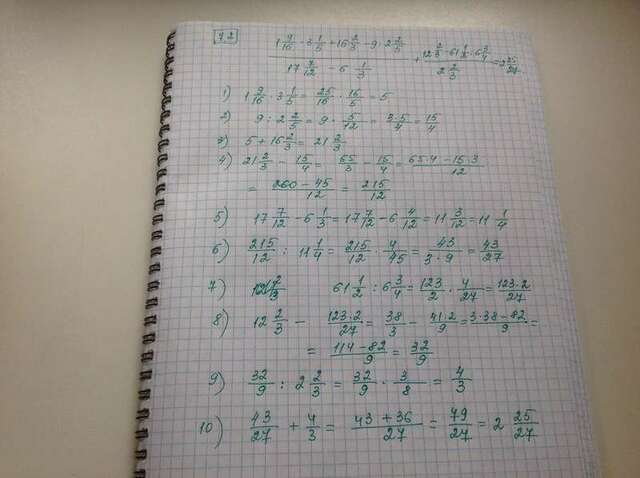 92
(1 9/16 · 3 1/5 + 16 2/3 - 9 : 2 2/5) / (17 7/12 - 6 1/3) + (12 2/3 - 61 1/2 : 6 3/4) / (2 2/3) = 2 25/27
1) 1 9/16 · 3 1/5 = 25/16 · 16/5 = 5
2) 9 : 2 2/5 = 9 · 5/12 = 3·5/4 = 15/4
3) 5 + 16 2/3 = 21 2/3
4) 21 2/3 - 15/4 = 65/3 - 15/4 = (65·4 - 15·3)/12
= (260 - 45)/12 = 215/12
5) 17 7/12 - 6 1/3 = 17 7/12 - 6 4/12 = 11 3/12 = 11 1/4
6) 215/12 : 11 1/4 = 215/12 · 4/45 = 43/(3·9) = 43/27
7) 61 1/2 : 6 3/4 = 123/2 · 4/27 = 123·2/27
8) 12 2/3 - 123·2/27 = 38/3 - 41·2/9 = (3·38 - 82)/9 =
= (114 - 82)/9 = 32/9
9) 32/9 : 2 2/3 = 32/9 · 3/8 = 4/3
10) 43/27 + 4/3 = (43 + 36)/27 = 79/27 = 2 25/27